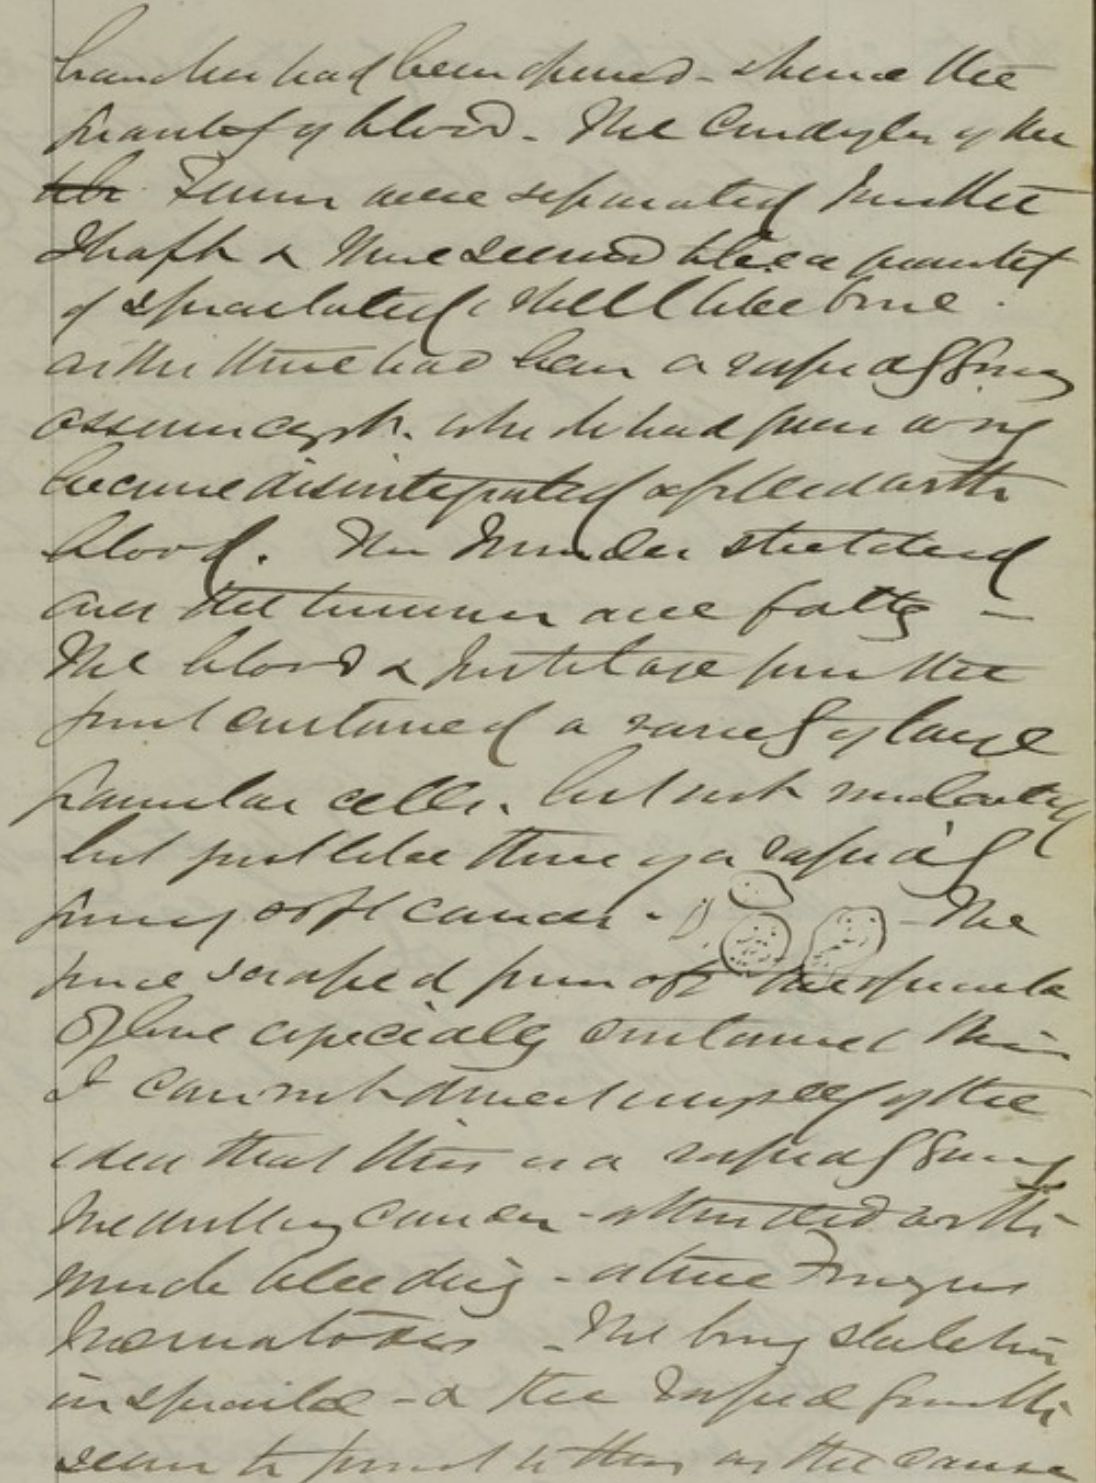 branches had been opened - & hence the
quantity of blood. The Condyles of the
the Femur were separated from the
Shaft & there seemed to be a quantity
of spiculated shell like bone.
as tho there had been a rapidly growing
which had given way
become disintegrated & filled with
blood. The muscles stretched
over the tumour are fatty -
The blood & from the
joint contained a variety of large
granular cells. but not nucleated
but just like those of a rapidly
growing soft cancer - The
juice scraped from off the spicula
of bone especially contained this
I cannot divest myself of the
idea that this is a rapidly growing
Medullary cancer - attended with
much bleeding - a true Fungus
haematodes - The bony skeleton
in spiculae - & the rapid growth
seem to point to this as the cause